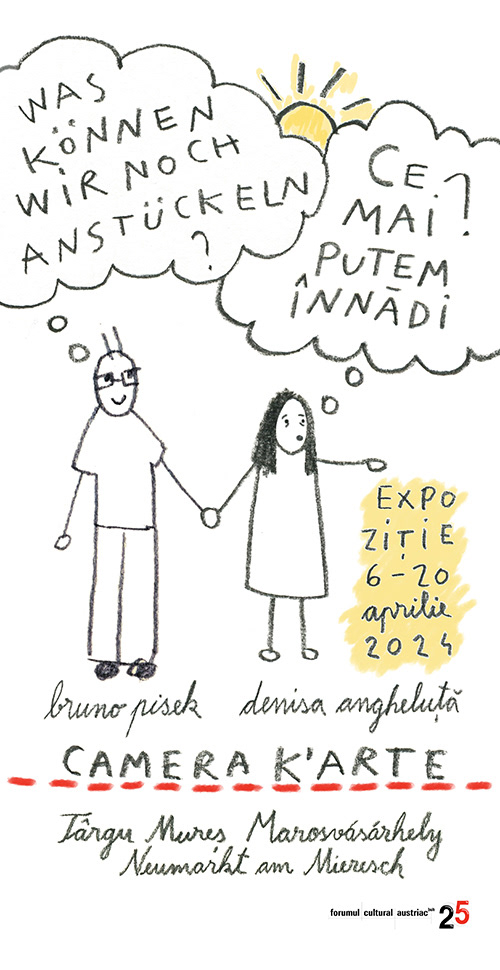 WAS
KÖNNEN
WIR NOCH
ANSTÜCKELN
?
CE
MAI?
PUTEM
ÎNNĂDI
EXPO
ZIȚIE
6-20
aprilie
2024
bruno pisek denisa angheluță
CAMERA K'ARTE
Târgu Mures Marosvásárhely
Neumarkt am Mieresch
forumul cultural austriac 25